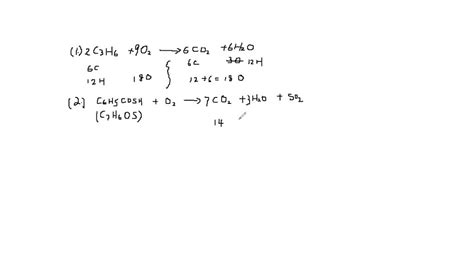 (1) 2C3H6 + 9O2 → 6CO2 + 6H2O
6C 6C 30 12H
12H 18O 12+6=18O
(2) C6H5COSH + O2 → 7CO2 + 3H2O + SO2
(C7H6OS) 14